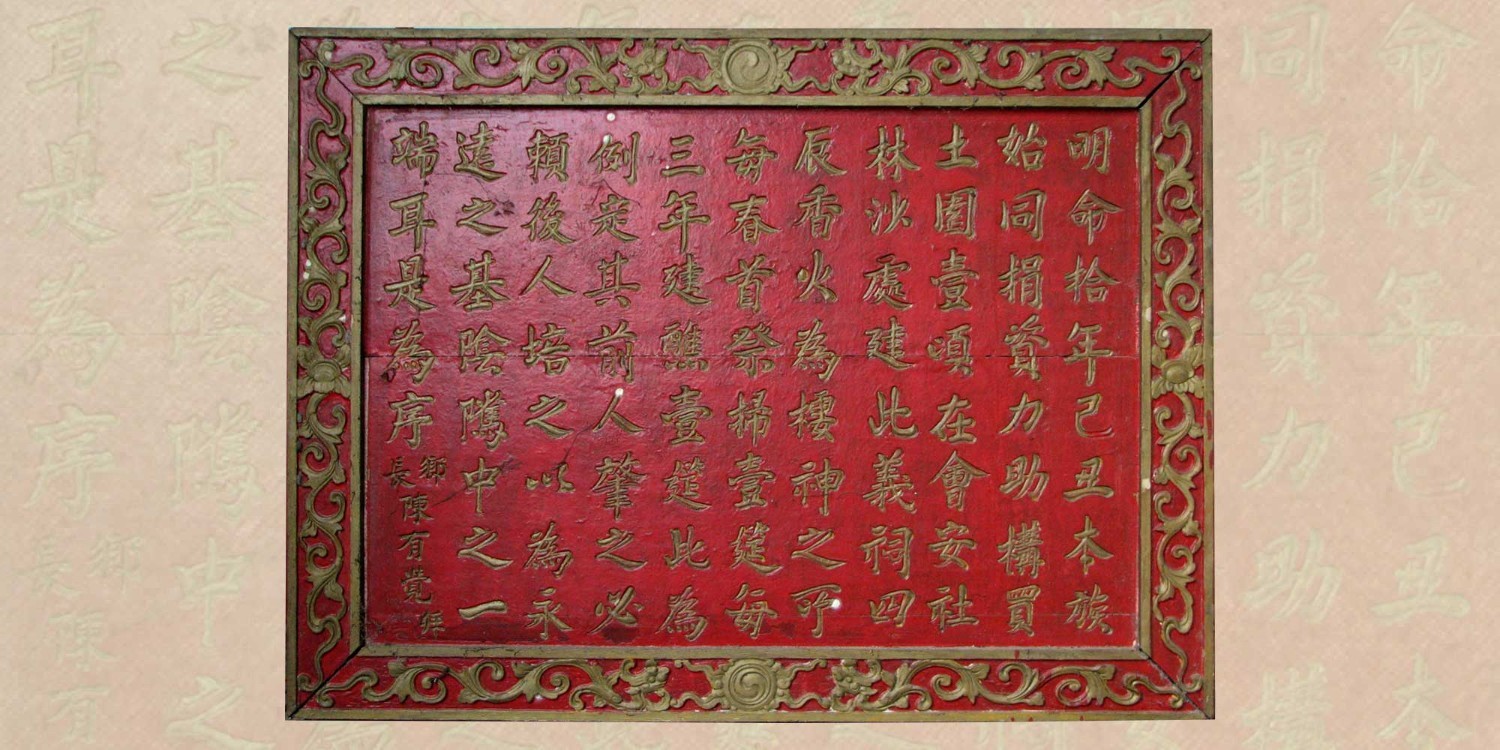 明命拾年己丑本族
始同捐資力助構買
土園壹頃在會安社
林沙處建此義祠四
辰香火為樓神之所
每春首祭掃壹筵每
三年建醮壹筵此為
例定其前人肇之必
賴後人培之以為永
遠之基陰隲中之一
端耳是為序
鄉長陳有覺拜